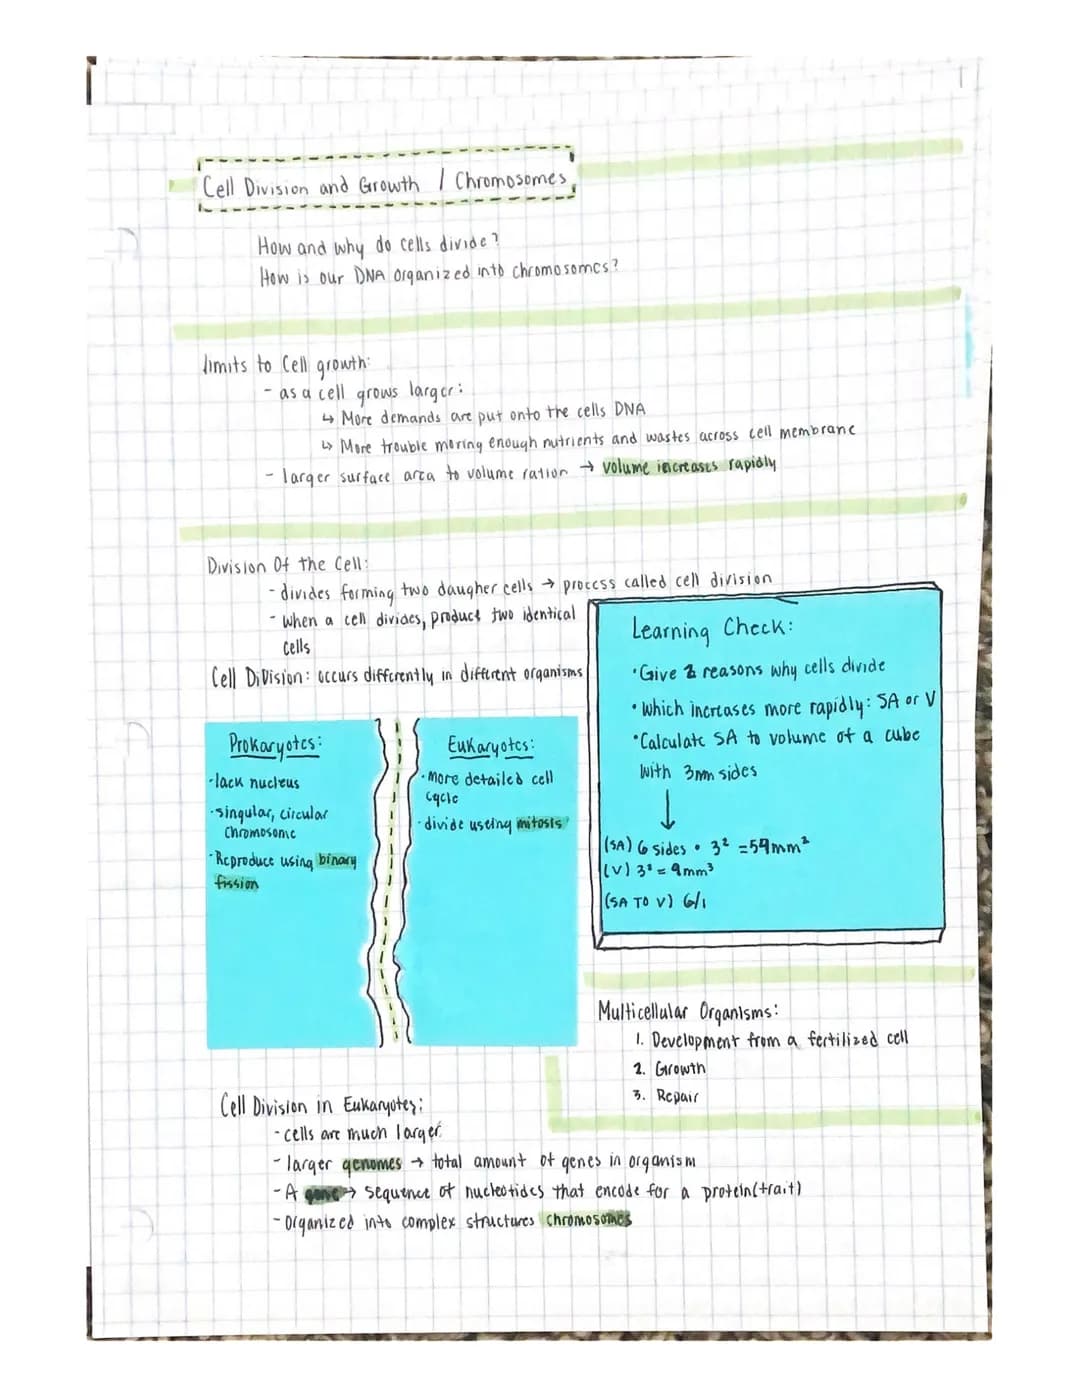 Cell Division and Growth / Chromosomes
How and why do cells divide?
How is our DNA organized into chromosomes?
limits to Cell growth:
- as a cell grows larger:
↳ More demands are put onto the cells DNA
↳ More trouble moring enough nutrients and wastes across cell membrane
- larger surface area to volume ration → volume increases rapidly
Division Of the Cell:
- divides forming two daugher cells → process called cell division
- when a cell divides, product two identical
cells
Cell Division: occurs differently in different organisms
Prokaryotes:
- lack nucleus
- singular, circular
chromosome
- Reproduce using binary
fission
Eukaryotes:
- More detailed cell
cycle
- divide useing mitosis
Learning Check:
• Give 2 reasons why cells divide
• which increases more rapidly: SA or V
• Calculate SA to volume of a cube
with 3mm sides
↓
(SA) 6 sides • 3² = 54mm²
(V) 3³ = 9mm³
(SA TO V) 6/1
Multicellular Organisms:
1. Development from a fertilized cell
2. Growth
3. Repair
Cell Division in Eukaryotes:
- cells are much larger
- larger genomes → total amount of genes in organism
- A gene → sequence of nucleotides that encode for a protein(trait)
- Organized into complex structures chromosomes